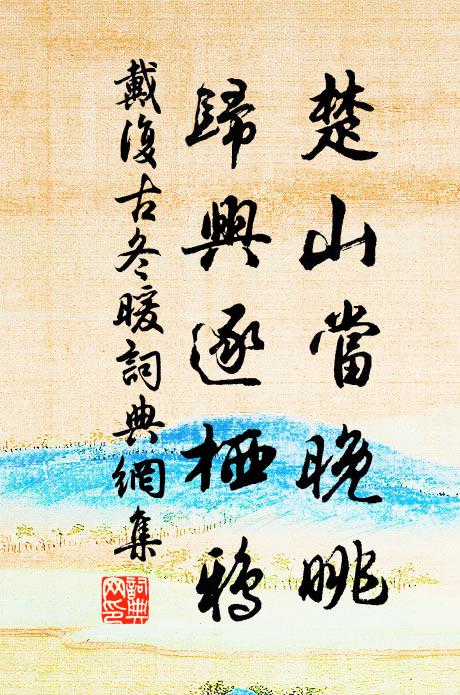 楚山當晚眺
歸興逐栖鴉
戴復古冬暖詞典網集